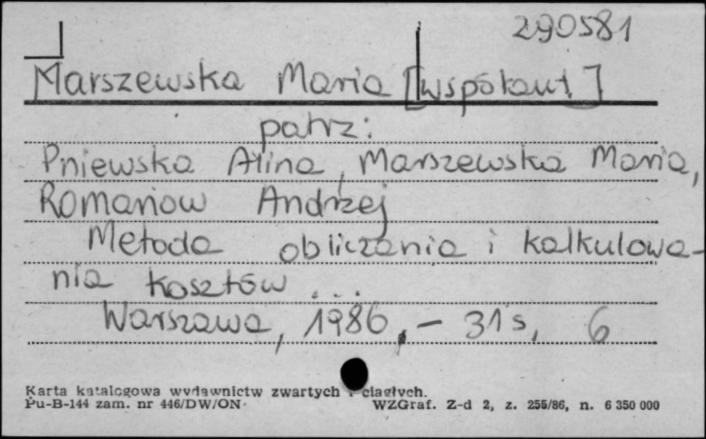 290581
Marszewska Maria [współaut.]
patrz:
Pniewska Alina, Marszewska Maria,
Romanow Andrzej
Metoda obliczania i kalkulowa-
nia kosztów ...
Warszawa, 1986, - 31 s, 6
Karta katalogowa wydawnictw zwartych i ciągłych.
Pu-B-144 zam. nr 446/DW/ON WZGraf. Z-d 2, z. 255/86, n. 6 350 000